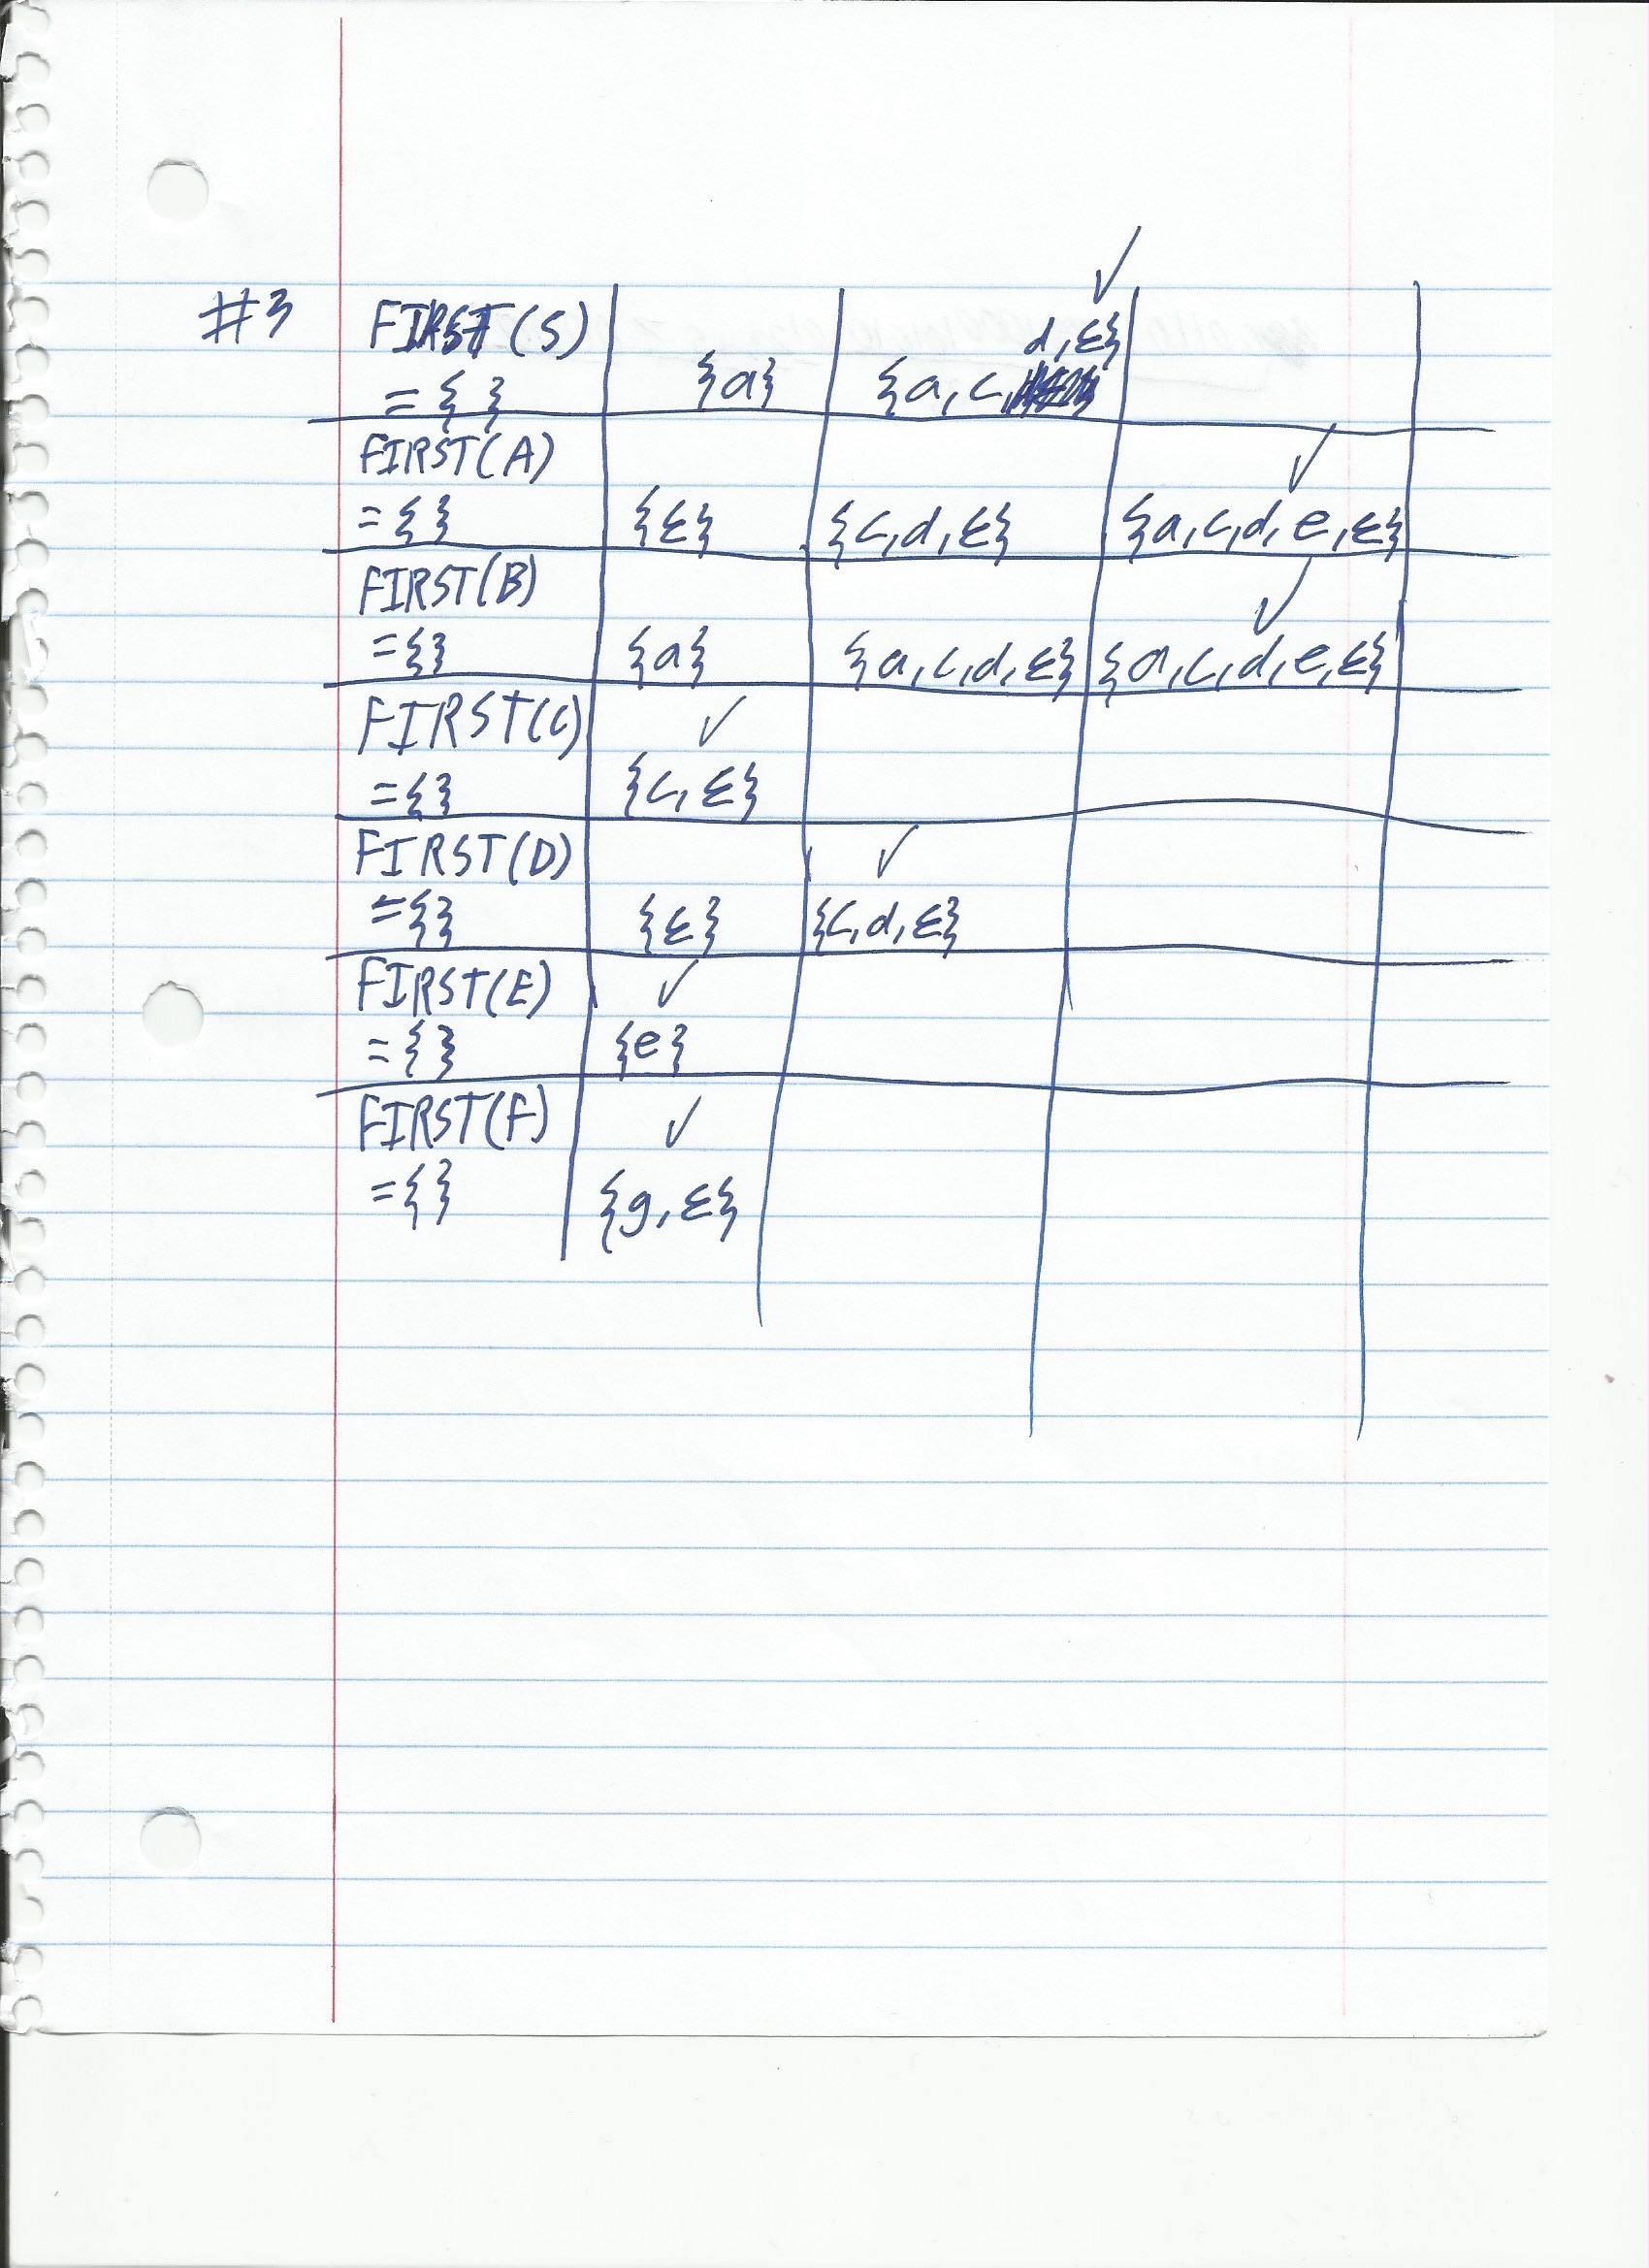 #3 FIRST(S) d,ε}
={ } {a} {a,c,
FIRST(A)
={} {ε} {c,d,ε} {a,c,d,e,ε}
FIRST(B)
={} {a} {a,c,d,ε} {a,c,d,e,ε}
FIRST(C) ✓
={} {c,ε}
FIRST(D) ✓
={} {ε} {c,d,ε}
FIRST(E) ✓
={} {e}
FIRST(F) ✓
={} {g,ε}